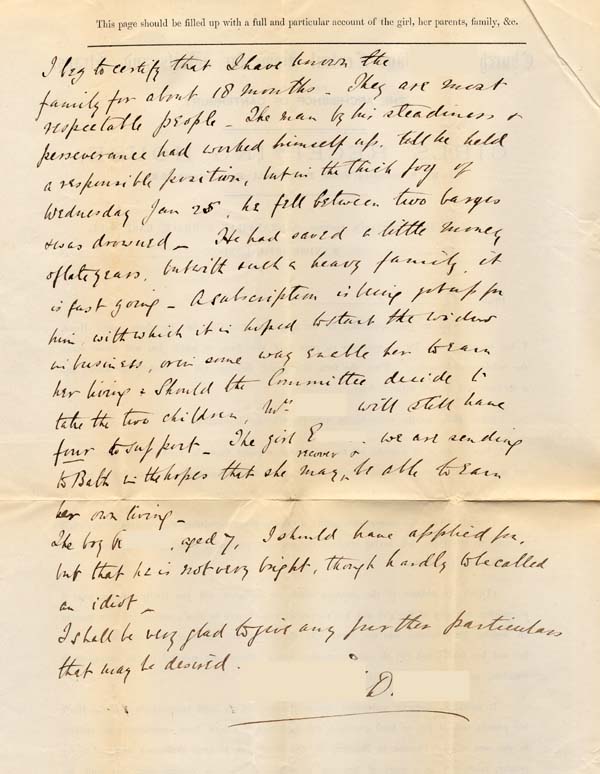 This page should be filled up with a full and particular account of the girl, her parents, family, &c.
I beg to certify that I have known the
family for about 18 months - They are most
respectable people - The man by his steadiness &
perseverance had worked himself up, till he held
a responsible position, but in the thick fog of
Wednesday Jan 25, he fell between two barges
& was drowned - He had saved a little money
of late years, but with such a heavy family, it
is fast going - A subscription is being got up for
him, with which it is hoped to start the widow
in business, or in some way enable her to earn
her living & Should the Committee decide to
take the two children, Mrs will still have
four to support - The girl E we are sending
recover &
to Bath in the hopes that she may be able to earn
her own living -
The boy , aged 7, I should have applied for,
but that he is not very bright, though hardly to be called
an idiot -
I shall be very glad to give any further particulars
that may be desired.
D.